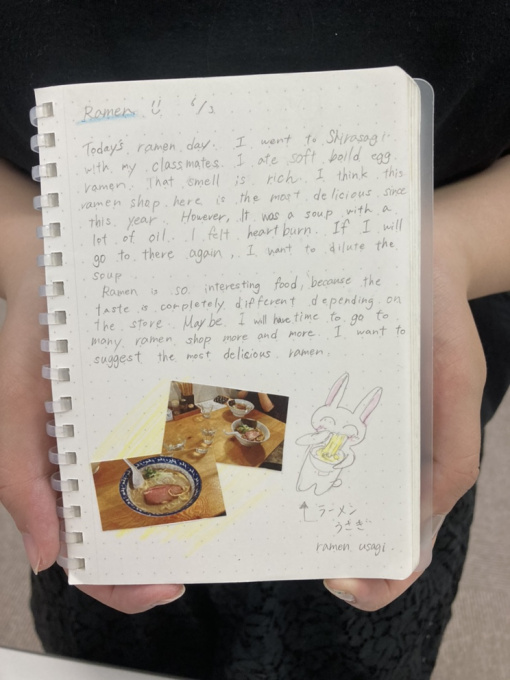 Ramen
Today's ramen day. I went to Shirasagi
with my classmates. I ate soft boild egg
ramen. That smell is rich. I think this
ramen shop here is the most delicious since
this year. However, It was a soup with a
lot of oil. I felt heartburn. If I will
go to there again, I want to dilute the
soup
Ramen is so interesting food, because the
taste is completely different depending on
the store. Maybe I will have time to go to
many ramen shop more and more. I want to
suggest the most delicious ramen.
ラーメン
うさぎ
ramen usagi